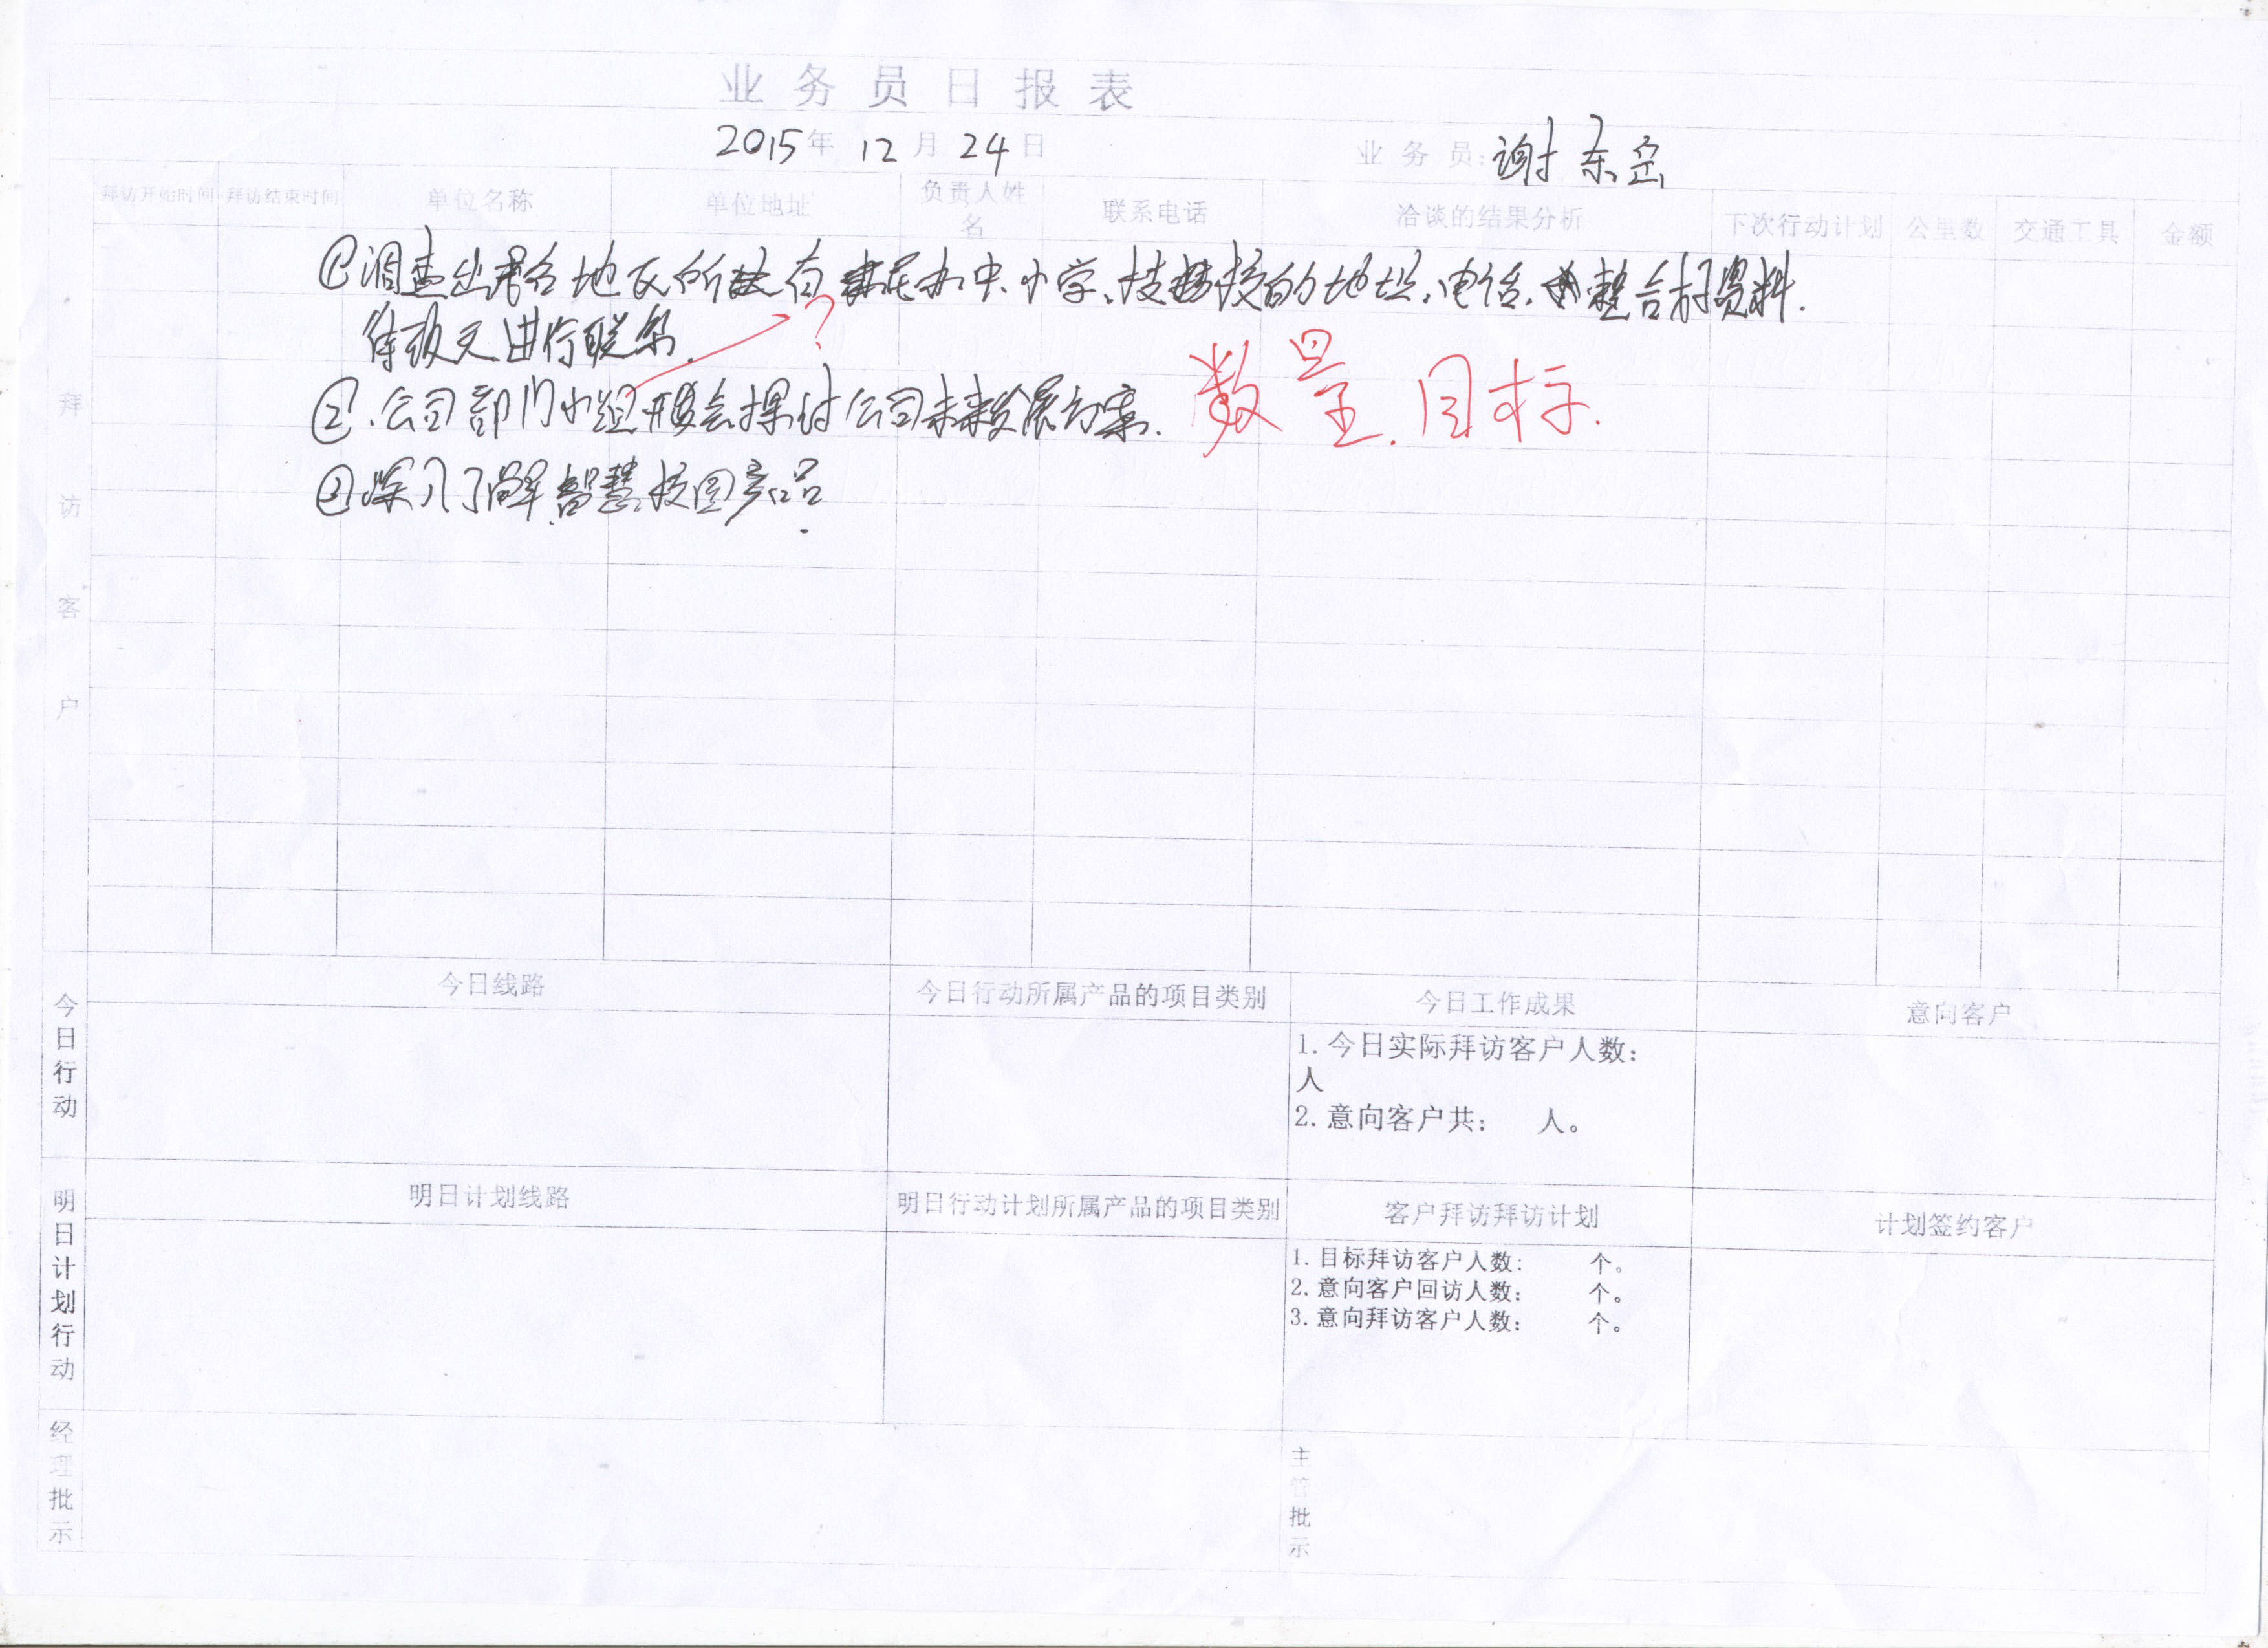 业务员日报表
2015年 12月 24日 业务员:谢东
拜访开始时间 拜访结束时间 单位名称 单位地址 负责人姓名 联系电话 洽谈的结果分析 下次行动计划 公里数 交通工具 金额
①调查出各地区所有民办中、小学、技校的地址、电话,整合好资料.
待明天进行联系.
?
②.公司部门小组开会探讨公司未来发展方案.
数量.目标.
③深入了解智慧校园产品.
拜访客户
今日行动
今日线路 今日行动所属产品的项目类别 今日工作成果 意向客户
1.今日实际拜访客户人数:
人
2.意向客户共: 人。
明日计划行动
明日计划线路 明日行动计划所属产品的项目类别 客户拜访拜访计划 计划签约客户
1.目标拜访客户人数: 个。
2.意向客户回访人数: 个。
3.意向拜访客户人数: 个。
经理批示
主管批示